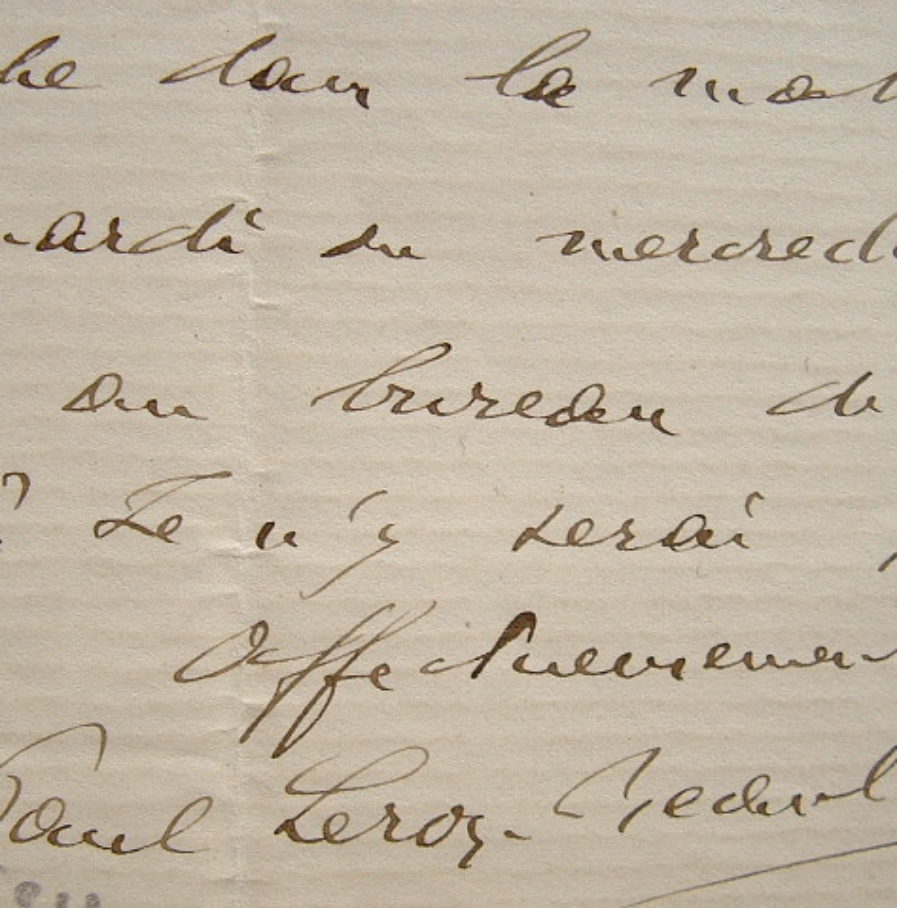 he dans la mat
ardi ou mercredi
au bureau de
? Je n'y serai
Affectueusemen
Paul Leroy-Beaul